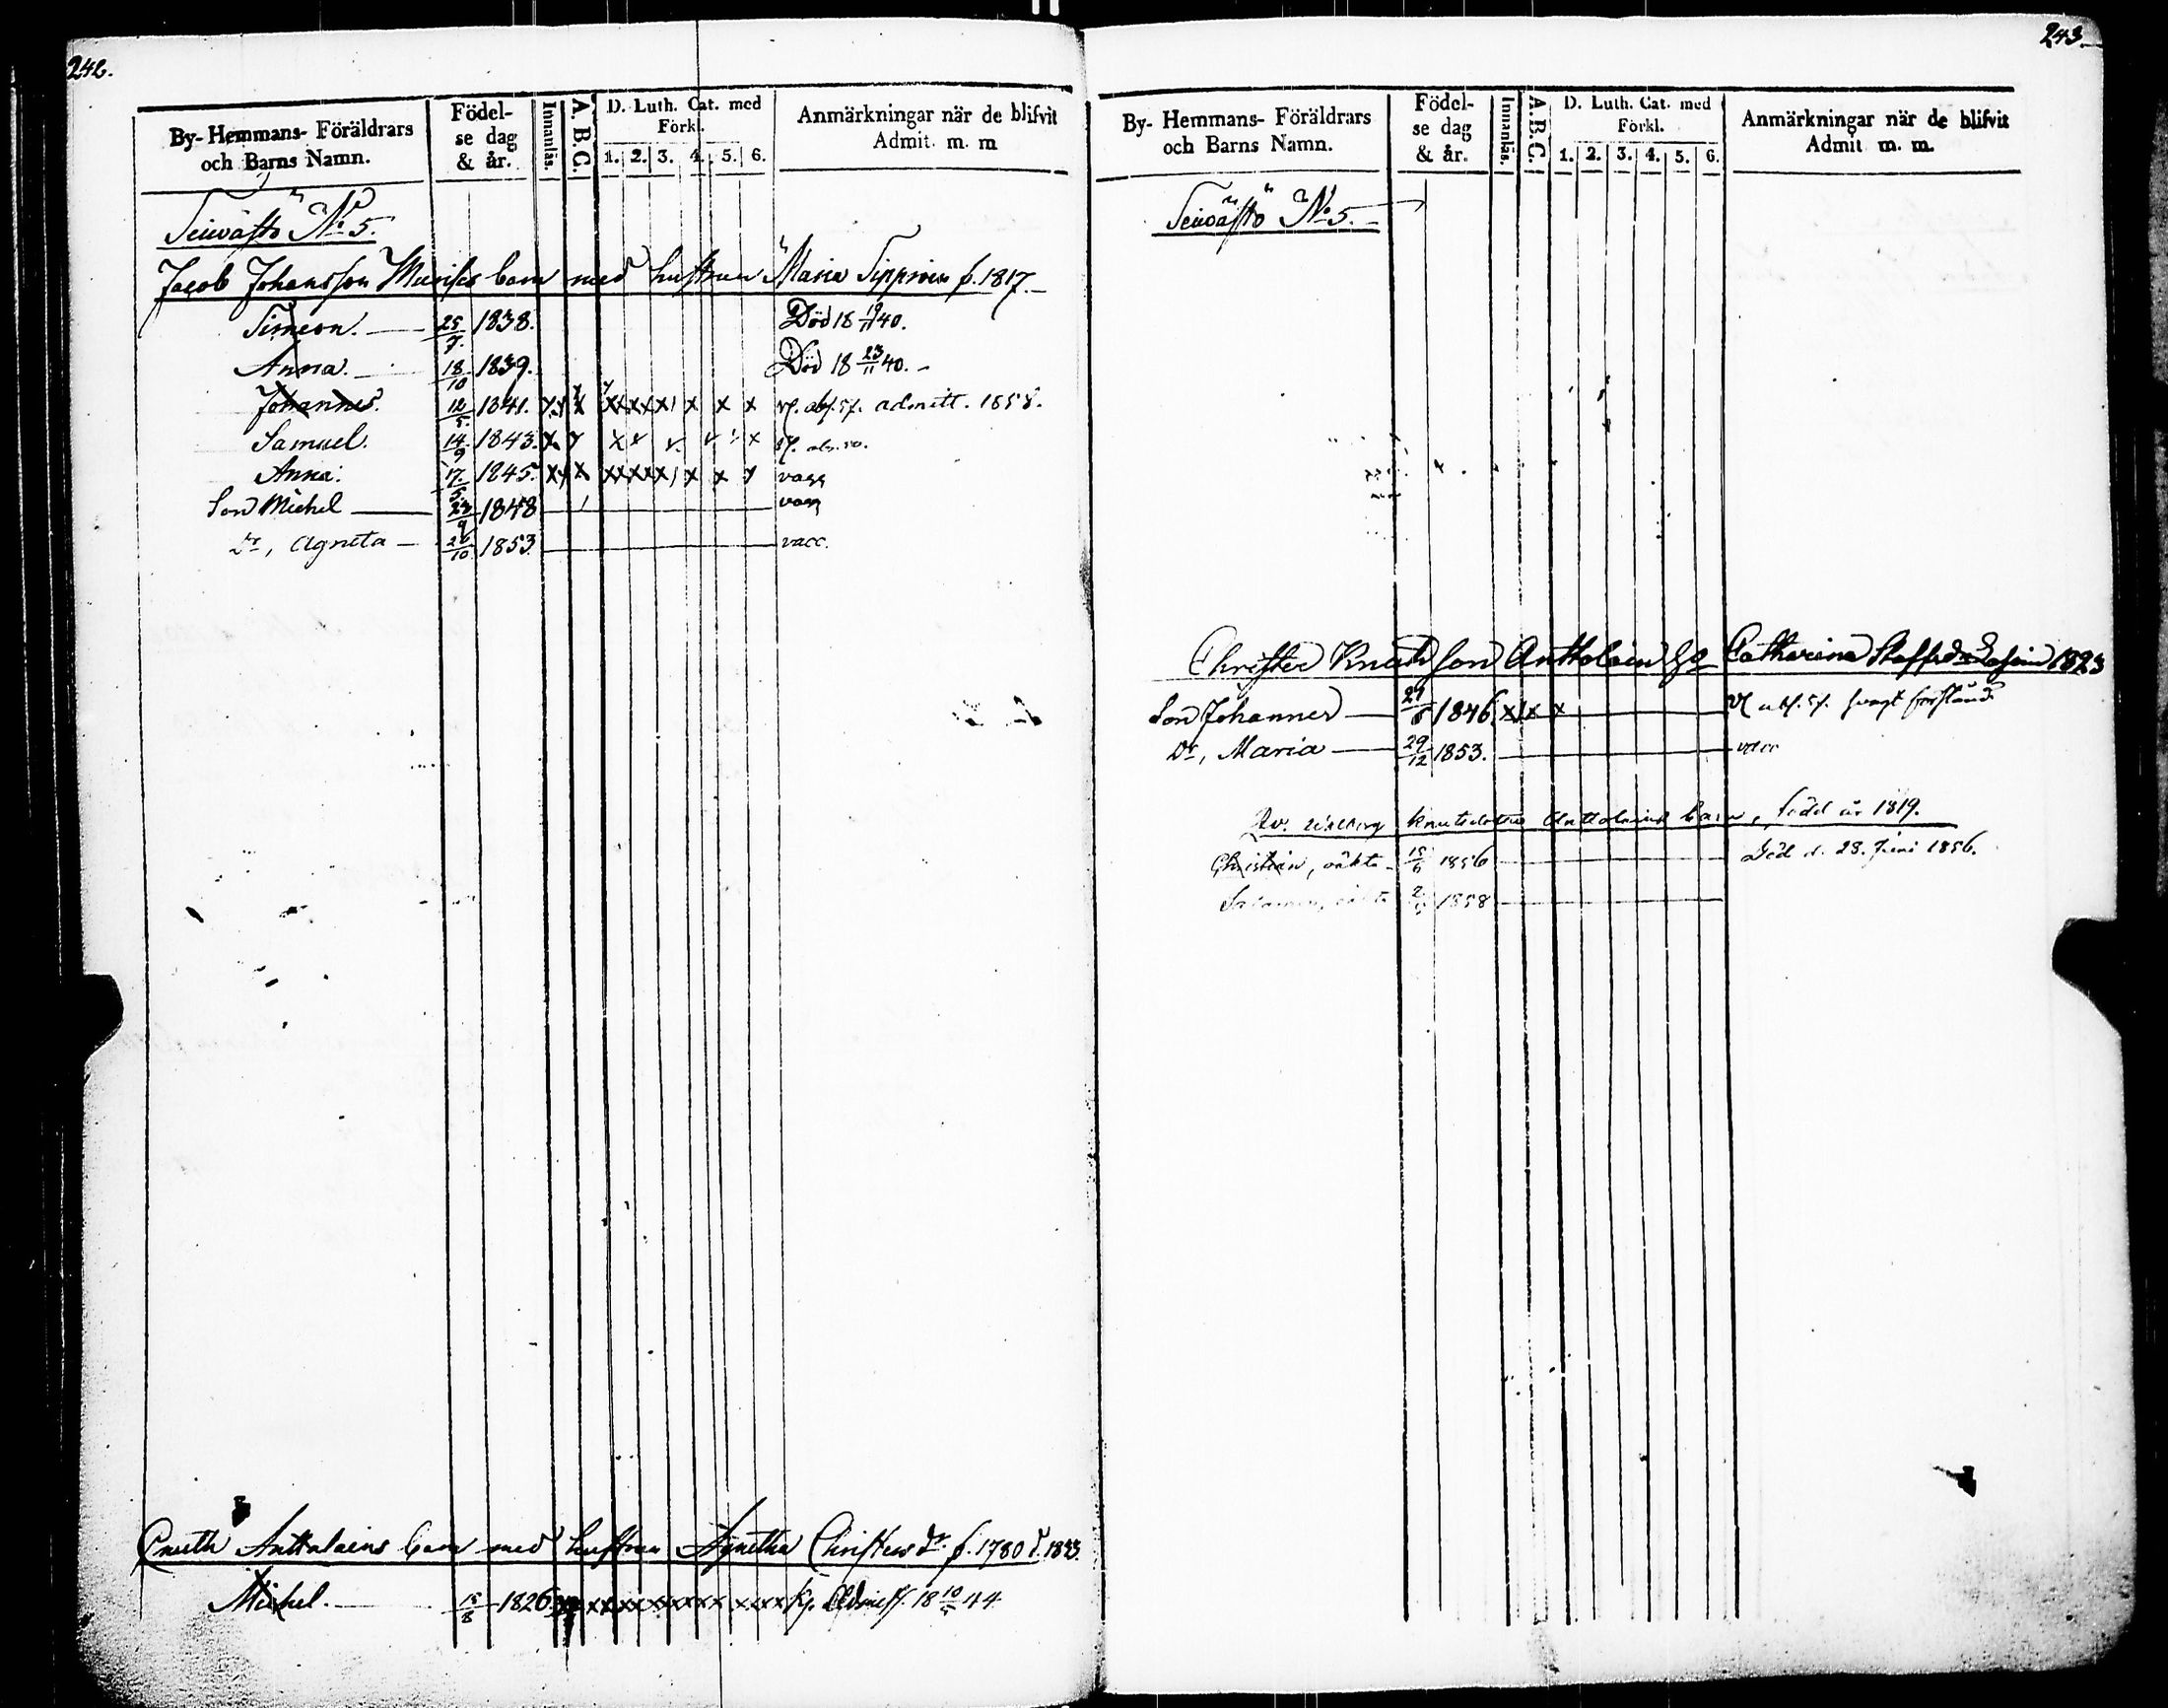 242.
By- Hemmans- Föräldrars och Barns Namn.
Födel-se dag & år.
Innanläs.
A. B. C.
D. Luth. Cat. med Förkl.
1. 2. 3. 4. 5. 6.
Anmärkningar när de blifvit Admit. m. m
SeiväStö No 5.
Jacob Johansson barn med hustrun Maria f. 1817.
Simeon. 25/7 1838. Död 18 19/11 40.
Anna. 18/10 1839. Död 18 23/11 40.
Johannes. 12/5 1841. x x xxxxx x x x admitt. 1858.
Samuel. 14/9 1843. x x
Anna. 17/5 1845. xx x xxxxx x x
Son Michel 23/9 1848
Dr, Agneta 26/10 1853 vacc.
Cnuth Anttalains barn med hustrun Agnetha Christersdr f. 1780 d. 1833.
Michel. 15/8 1826 18 10/5 44
243.
By- Hemmans- Föräldrars och Barns Namn.
Födel-se dag & år.
Innanläs.
A. B. C.
D. Luth. Cat. med Förkl.
1. 2. 3. 4. 5. 6.
Anmärkningar när de blifvit Admit m. m.
SeiväStö No 5.
Christer Knutsson Anttolain Catharina 1823
Son Johannes 1846 x x x svagt förstånd
Dr, Maria 29/12 1853. vacc
Knutsdotter Anttolains barn, född år 1819.
Christian, oäkta 15/6 1856 Död d. 28. Juni 1856.
1858